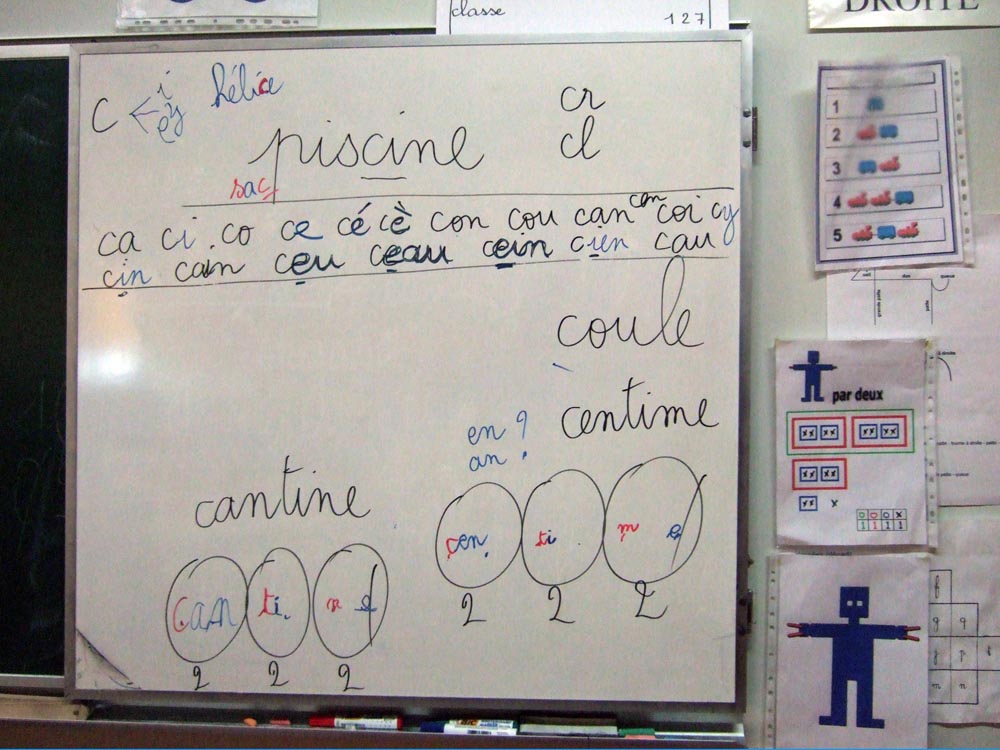 classe
127
DROITE
c < i
e y
hélice
cr
cl
piscine
sac
ca ci co ce cé cè con cou can cen coi cy
cin cain ceu ceau cein cien cau
coule
centime
en ?
an
cantine
cen ti m e
2 2 2
can ti n e
2 2 2
1
2
3
4
5
par deux
1 1 1 1
BIC
g q
p
m n